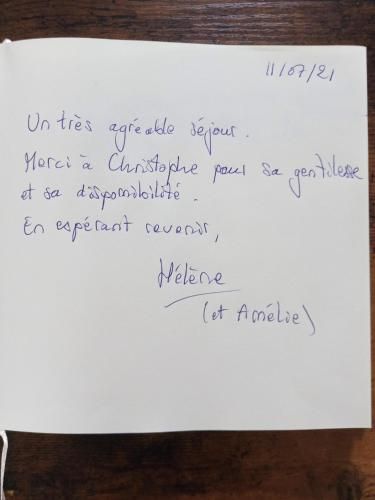 11/07/21
Un très agréable séjour.
Merci à Christophe pour sa gentilesse
et sa disponibilité.
En espérant revenir,
Hélène
(et Amélie)